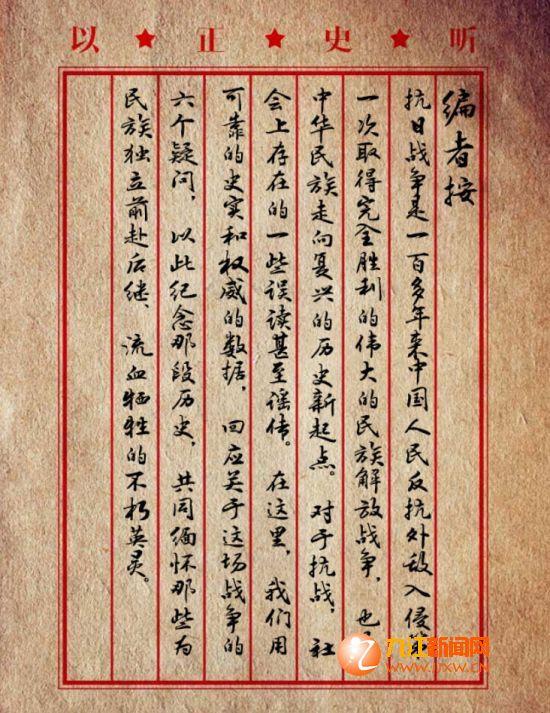 以★正★史★听
编者按
抗日战争是一百多年来中国人民反抗外敌入侵第
一次取得完全胜利的伟大的民族解放战争，也
中华民族走向复兴的历史新起点。对于抗战，社
会上存在的一些误读甚至谣传。在这里，我们用
可靠的史实和权威的数据，回应关于这场战争的
六个疑问，以此纪念那段历史，共同缅怀那些为
民族独立前赴后继、流血牺牲的不朽英灵。
九江新闻网